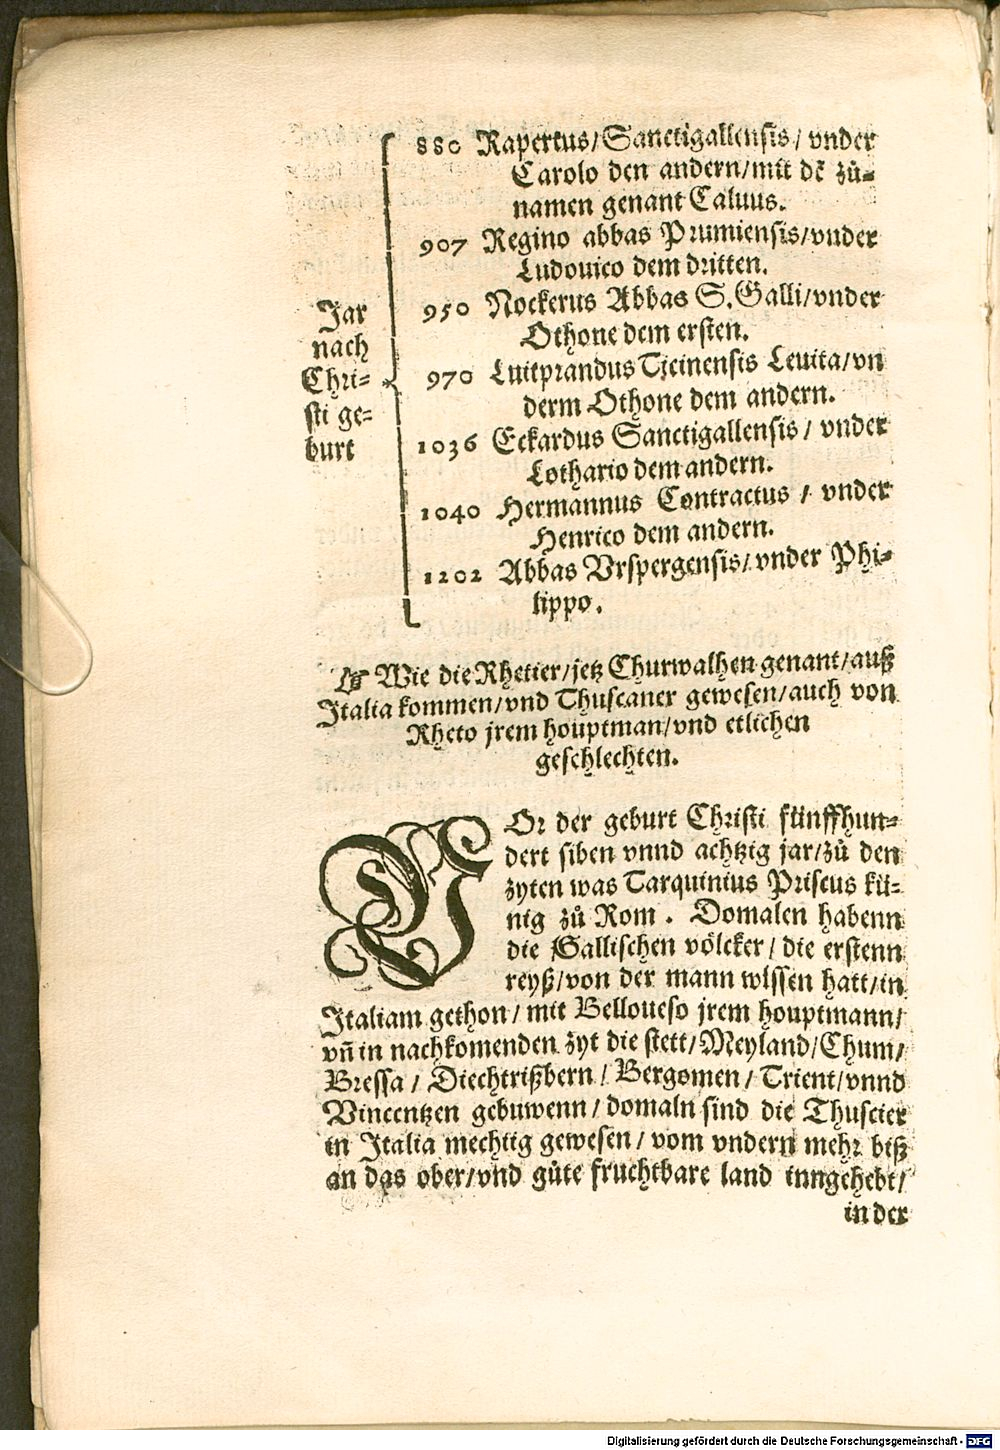 880 Rapertus/Sanctigallensis/ vnder
Carolo den andern/mit dẽ zů⸗
namen genant Caluus.
907 Regino abbas Prumiensis/vnder
Ludouico dem dritten.
950 Nockerus Abbas S. Galli/vnder
Othone dem ersten.
970 Luitprandus Ticinensis Leuita/vn
derm Othone dem andern.
1036 Eckardus Sanctigallensis / vnder
Lothario dem andern.
1040 Hermannus Contractus / vnder
Henrico dem andern.
1202 Abbas Vrspergensis/vnder Phi⸗
lippo.
Jar
nach
Chri⸗
sti ge⸗
burt
☞ Wie die Rhetier/jetz Churwalhen genant/auß
Italia kommen/vnd Thuscaner gewesen/auch von
Rheto jrem houptman/vnd etlichen
geschlechten.
VOr der geburt Christi fünffhun⸗
dert siben vnnd achtzig jar/zů den
zyten was Tarquinius Priscus kü⸗
nig zů Rom. Domalen habenn
die Gallischen völcker / die erstenn
reyß/von der mann wissen hatt/in
Italiam gethon/ mit Belloueso jrem houptmann/
vñ in nachkomenden zyt die stett/Meyland/Chum/
Bressa / Diechtrißbern / Bergomen / Trient/vnnd
Vincentzen gebuwenn/domaln sind die Thuscier
in Italia mechtig gewesen/ vom vndern mehr biß
an das ober/vnd gůte fruchtbare land inngehebt/
in der
Digitalisierung gefördert durch die Deutsche Forschungsgemeinschaft - DFG